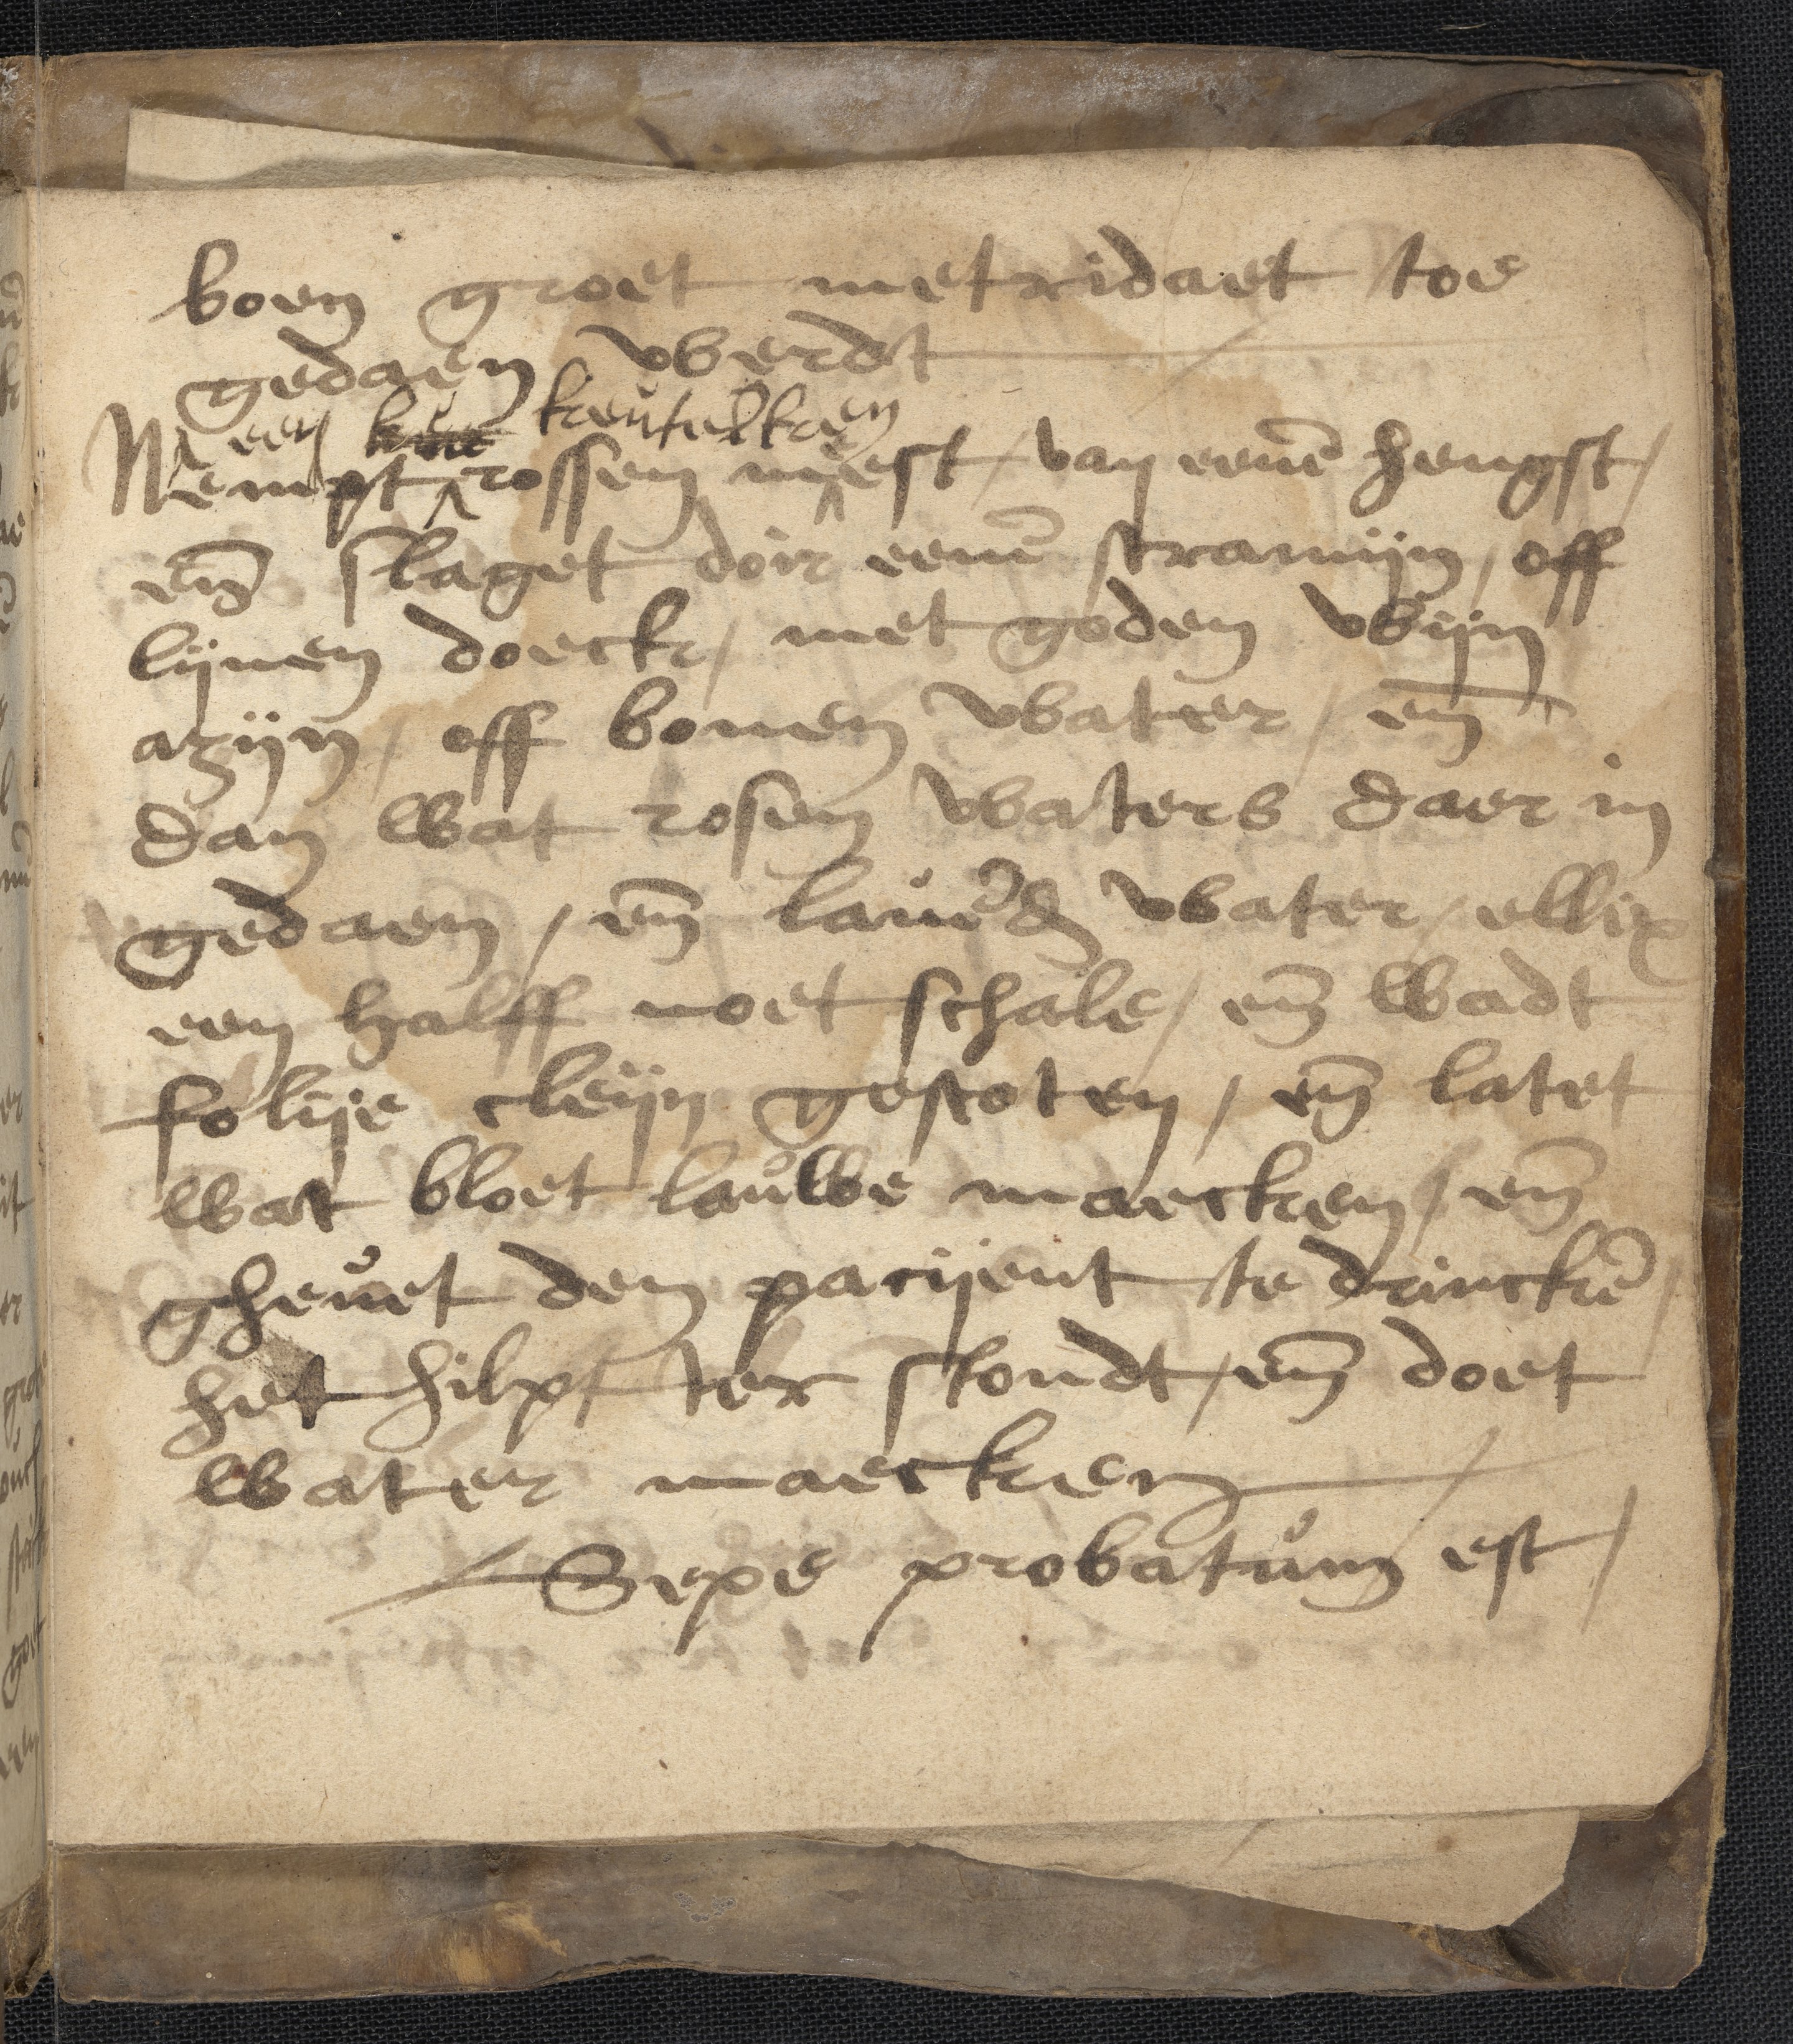 boen groet metridaet toe
gedaen werdt
een keutelken
Nempt rossen meest / van eenē hengst /
en̄ slaget doir eenē stramijn / off
lijnen doeck / met goden wijn
azijn / off bonen water / en̄
dan wat rosen waters daer in
gedaen / en̄ lauēd water / ellix
een halff noet schale / en̄ wadt
folije cleijn gestoten / en̄ latet
wat bloet lauwe maecken / en̄
gheuet den pacijent te drinckē /
het hilpt ter stondt / en̄ doet
water maecken
Sepe probatum est /